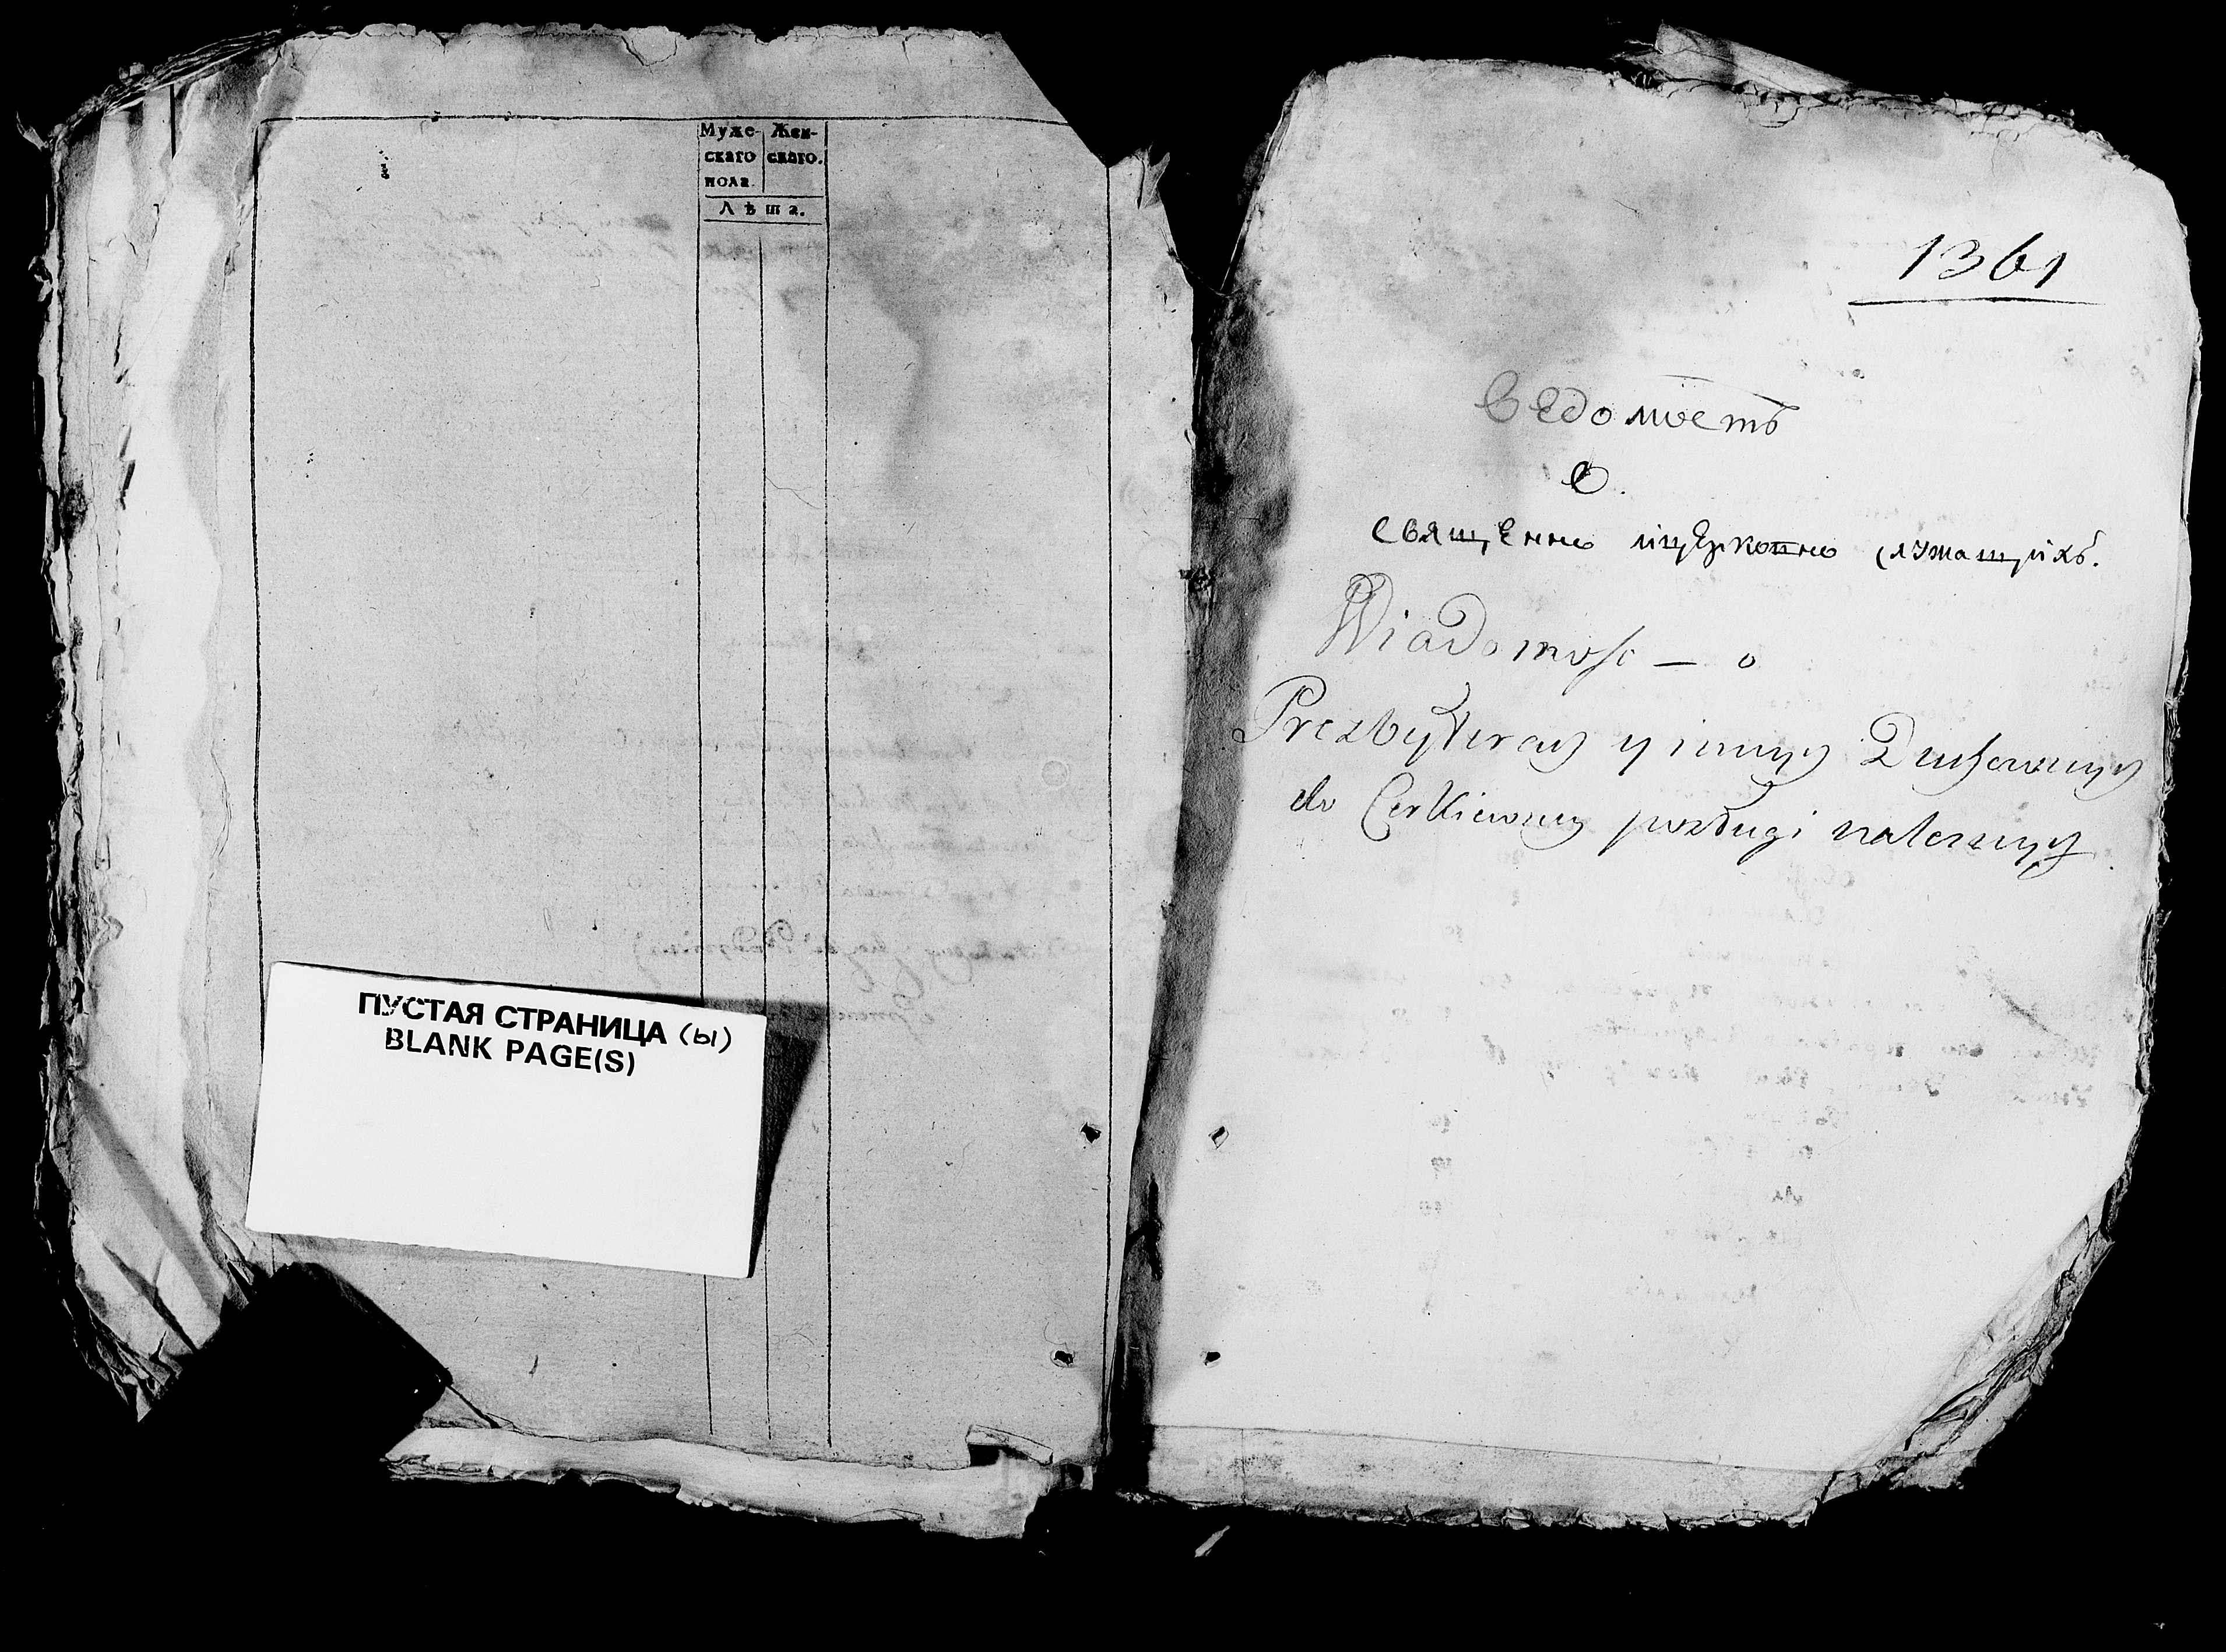 Муже- Жен-
скаго скаго.
пола.
Лѣта.
ПУСТАЯ СТРАНИЦА (ы)
BLANK PAGE(S)
1361
Ведомость
О.
священно ицерковно служащихъ.
Wiadomość — o
Prezbyterach y innych Duchownych
do Cerkiewney posługi należących